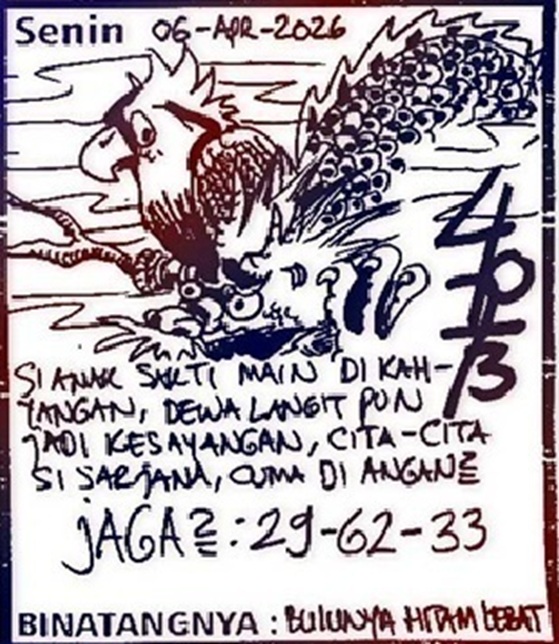 Senin 06-APR-2026
SI ANAK SAKTI MAIN DI KAH-
YANGAN, DEWA LANGIT PUN
JADI KESAYANGAN, CITA-CITA
SI SARJANA, CUMA DI ANGAN2
JAGA2 : 29-62-33
BINATANGNYA : BULUNYA HITAM LEBAT